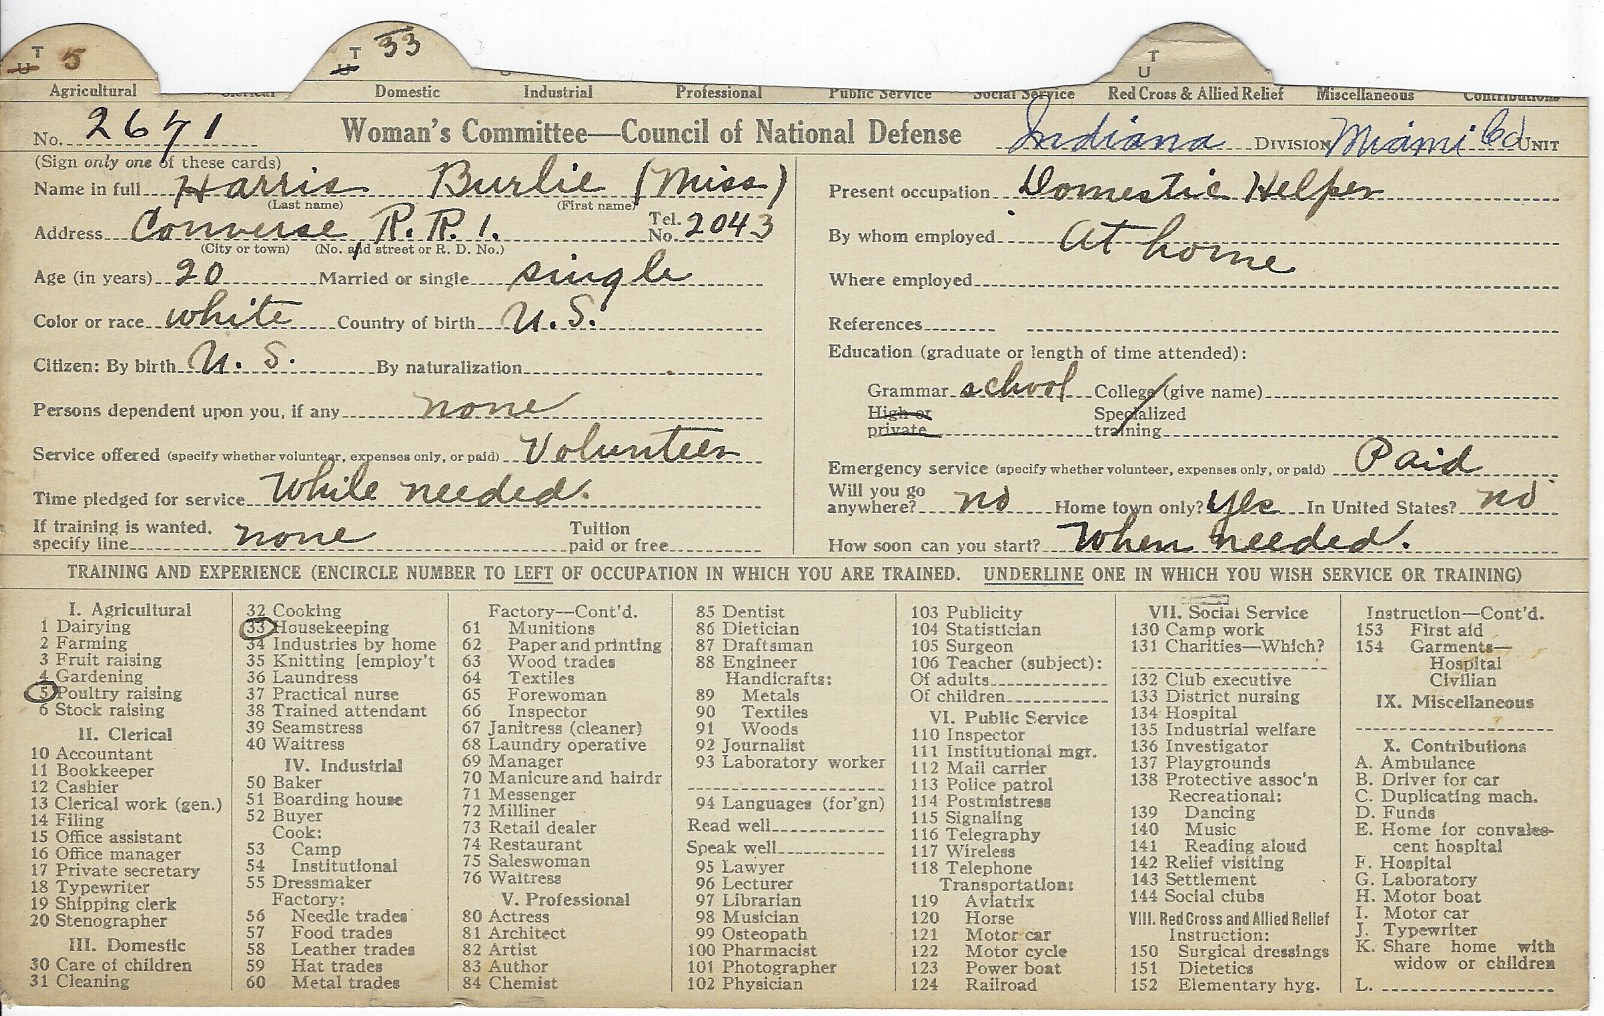 T U 5 T U 33 T U
Agricultural Clerical Domestic Industrial Professional Public Service Social Service Red Cross & Allied Relief Miscellaneous Contributions
No. 2671 Woman's Committee—Council of National Defense Indiana DIVISION Miami Co UNIT
(Sign only one of these cards)
Name in full Harris Burlie (Miss)
(Last name) (First name)
Address Converse R.R.1. Tel. No. 2043
(City or town) (No. and street or R. D. No.)
Age (in years) 20 Married or single single
Color or race white Country of birth U.S.
Citizen: By birth U.S. By naturalization
Persons dependent upon you, if any none
Service offered (specify whether volunteer, expenses only, or paid) Volunteer
Time pledged for service While needed.
If training is wanted, specify line none Tuition paid or free
Present occupation Domestic Helper
By whom employed At home
Where employed
References
Education (graduate or length of time attended):
Grammar school College (give name)
High or private Specialized training
Emergency service (specify whether volunteer, expenses only, or paid) Paid
Will you go anywhere? no Home town only? Yes In United States? no
How soon can you start? When needed.
TRAINING AND EXPERIENCE (ENCIRCLE NUMBER TO LEFT OF OCCUPATION IN WHICH YOU ARE TRAINED. UNDERLINE ONE IN WHICH YOU WISH SERVICE OR TRAINING)
I. Agricultural
1 Dairying
2 Farming
3 Fruit raising
4 Gardening
5 Poultry raising
6 Stock raising
II. Clerical
10 Accountant
11 Bookkeeper
12 Cashier
13 Clerical work (gen.)
14 Filing
15 Office assistant
16 Office manager
17 Private secretary
18 Typewriter
19 Shipping clerk
20 Stenographer
III. Domestic
30 Care of children
31 Cleaning
32 Cooking
33 Housekeeping
34 Industries by home
35 Knitting [employ't
36 Laundress
37 Practical nurse
38 Trained attendant
39 Seamstress
40 Waitress
IV. Industrial
50 Baker
51 Boarding house
52 Buyer
Cook:
53 Camp
54 Institutional
55 Dressmaker
Factory:
56 Needle trades
57 Food trades
58 Leather trades
59 Hat trades
60 Metal trades
Factory—Cont'd.
61 Munitions
62 Paper and printing
63 Wood trades
64 Textiles
65 Forewoman
66 Inspector
67 Janitress (cleaner)
68 Laundry operative
69 Manager
70 Manicure and hairdr
71 Messenger
72 Milliner
73 Retail dealer
74 Restaurant
75 Saleswoman
76 Waitress
V. Professional
80 Actress
81 Architect
82 Artist
83 Author
84 Chemist
85 Dentist
86 Dietician
87 Draftsman
88 Engineer
Handicrafts:
89 Metals
90 Textiles
91 Woods
92 Journalist
93 Laboratory worker
94 Languages (for'gn)
Read well
Speak well
95 Lawyer
96 Lecturer
97 Librarian
98 Musician
99 Osteopath
100 Pharmacist
101 Photographer
102 Physician
103 Publicity
104 Statistician
105 Surgeon
106 Teacher (subject):
Of adults
Of children
VI. Public Service
110 Inspector
111 Institutional mgr.
112 Mail carrier
113 Police patrol
114 Postmistress
115 Signaling
116 Telegraphy
117 Wireless
118 Telephone
Transportation:
119 Aviatrix
120 Horse
121 Motor car
122 Motor cycle
123 Power boat
124 Railroad
VII. Social Service
130 Camp work
131 Charities—Which?
132 Club executive
133 District nursing
134 Hospital
135 Industrial welfare
136 Investigator
137 Playgrounds
138 Protective assoc'n
Recreational:
139 Dancing
140 Music
141 Reading aloud
142 Relief visiting
143 Settlement
144 Social clubs
VIII. Red Cross and Allied Relief
Instruction:
150 Surgical dressings
151 Dietetics
152 Elementary hyg.
Instruction—Cont'd.
153 First aid
154 Garments—
Hospital
Civilian
IX. Miscellaneous
X. Contributions
A. Ambulance
B. Driver for car
C. Duplicating mach.
D. Funds
E. Home for convales-
cent hospital
F. Hospital
G. Laboratory
H. Motor boat
I. Motor car
J. Typewriter
K. Share home with
widow or children
L.